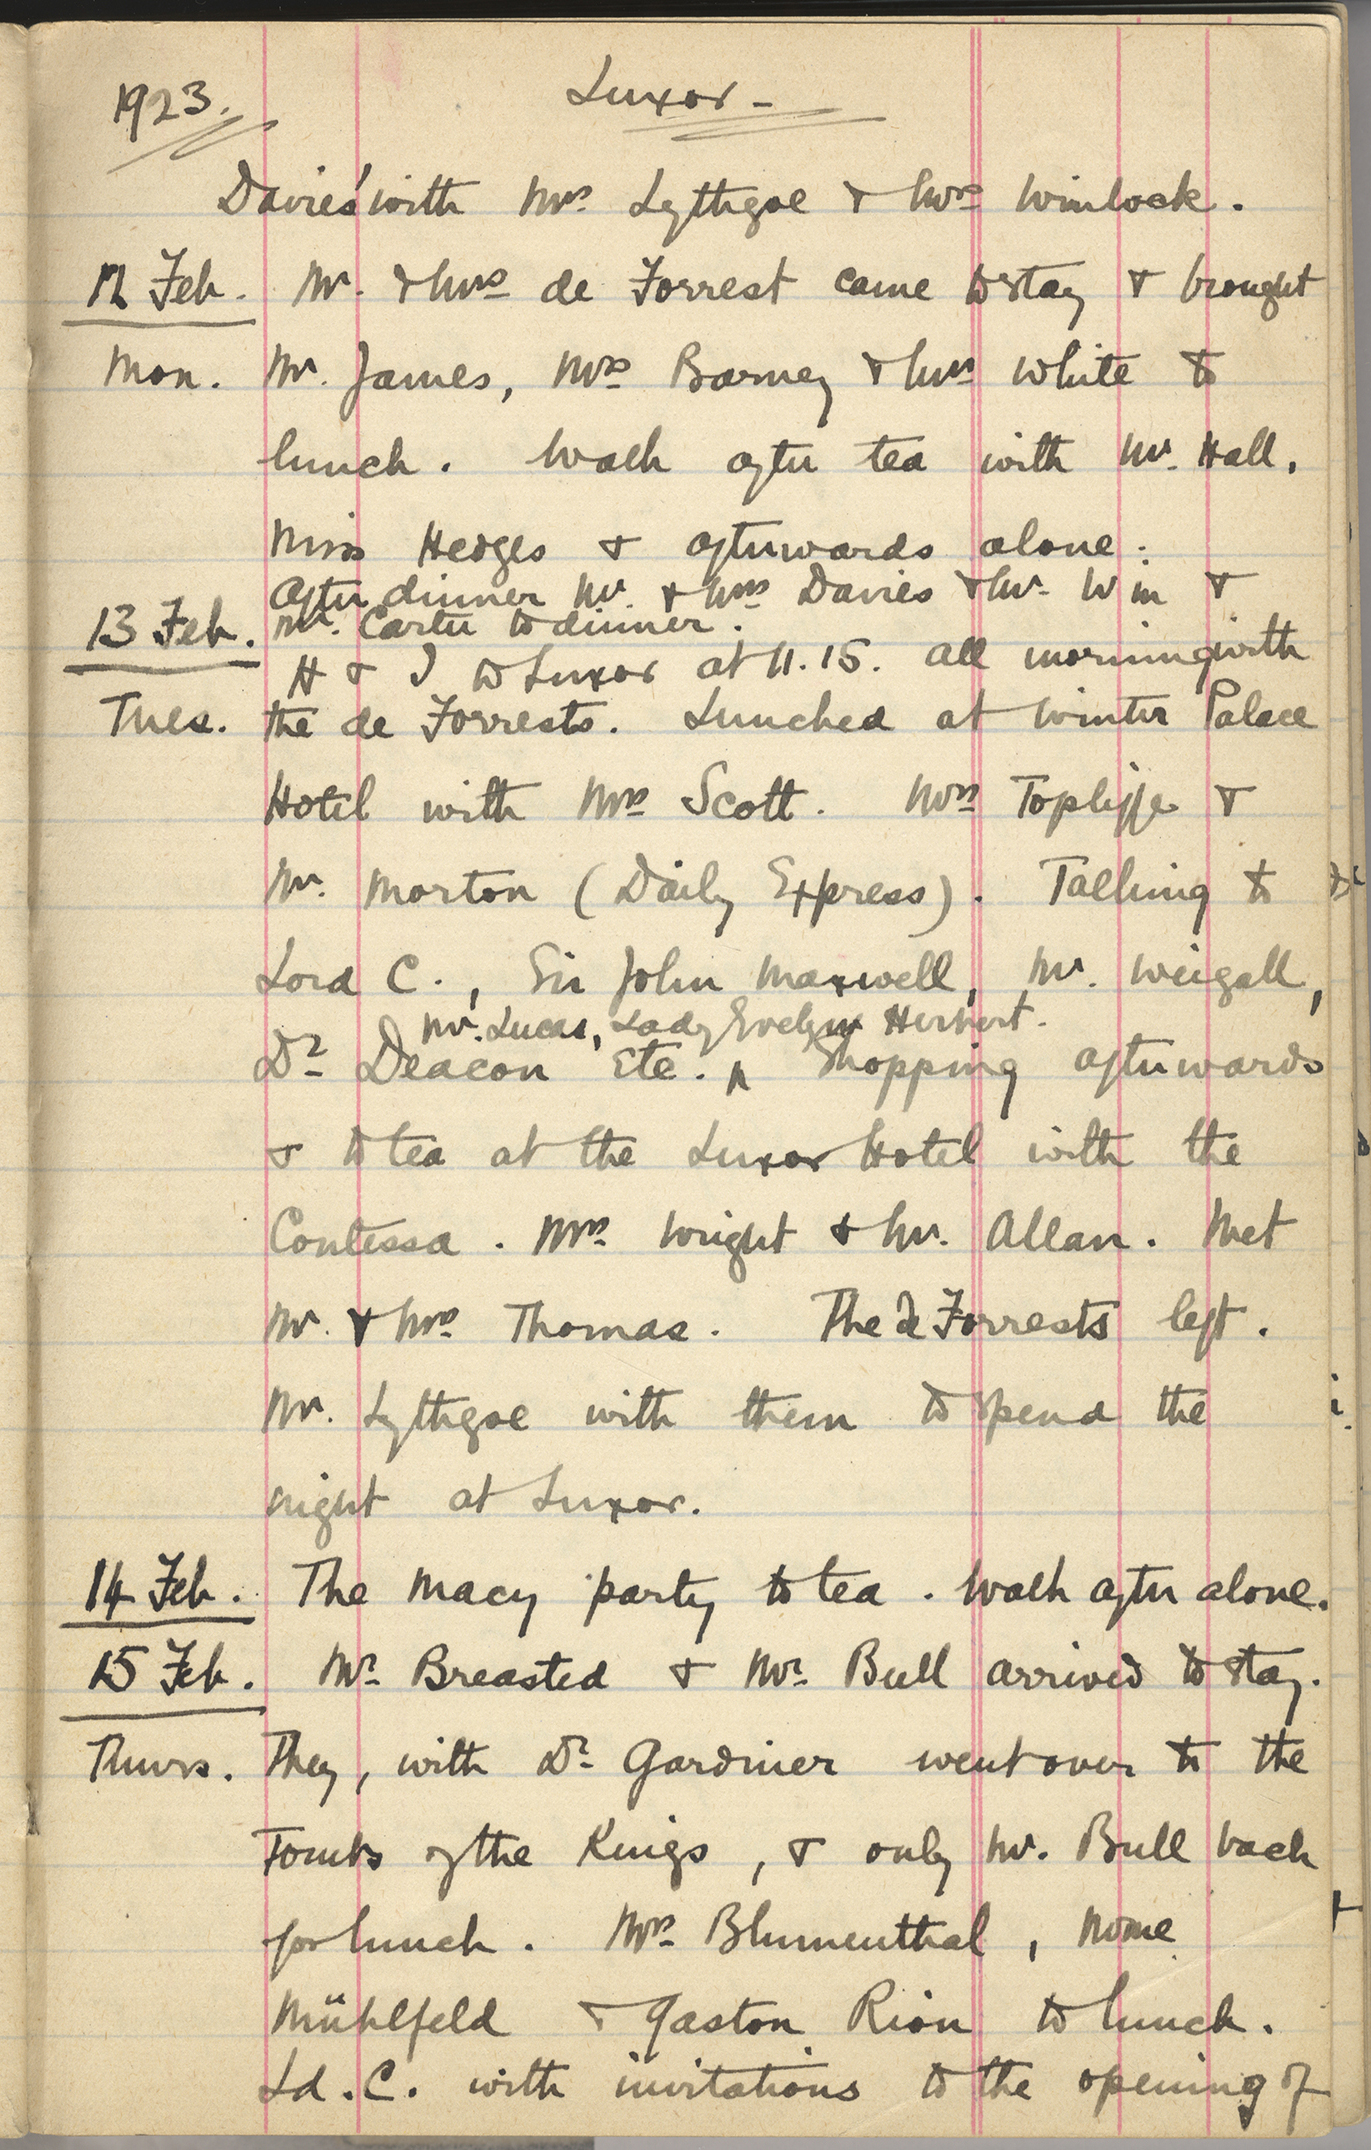 1923. Luxor -
Davies' with Mrs Lythgoe & Mrs Winlock.
12 Feb. Mr. & Mrs de Forrest came to stay & brought
Mon. Mr. James, Mrs Barney & Mrs White to
lunch. Walk after tea with Mr. Hall,
Miss Hedges & afterwards alone.
After dinner Mr. & Mrs Davies & Mr. W in &
Mr. Carter to dinner.
13 Feb. H & I to Luxor at 11.15. All morning with
Tues. the de Forrests. Lunched at Winter Palace
Hotel with Mrs Scott. Mrs Topliffe &
Mr. Morton (Daily Express). Talking to
Lord C., Sir John Maxwell, Mr. Weigall,
Mr. Lucas, Lady Evelyn Herbert.
Dr Deacon Etc. ^ Shopping afterwards
& to tea at the Luxor Hotel with the
Contessa. Mrs Wright & Mr. Allan. Met
Mr. & Mrs Thomas. The de Forrests left.
Mr. Lythgoe with them to spend the
night at Luxor.
14 Feb. The Macy party to tea. Walk after alone.
15 Feb. Mr Breasted & Mr Bull arrived to stay.
Thurs. They, with Dr Gardiner went over to the
Tombs of the Kings, & only Mr. Bull back
for lunch. Mrs Blumenthal, Mome
Mühlfeld & Gaston Rion to lunch.
Ld. C. with invitations to the opening of